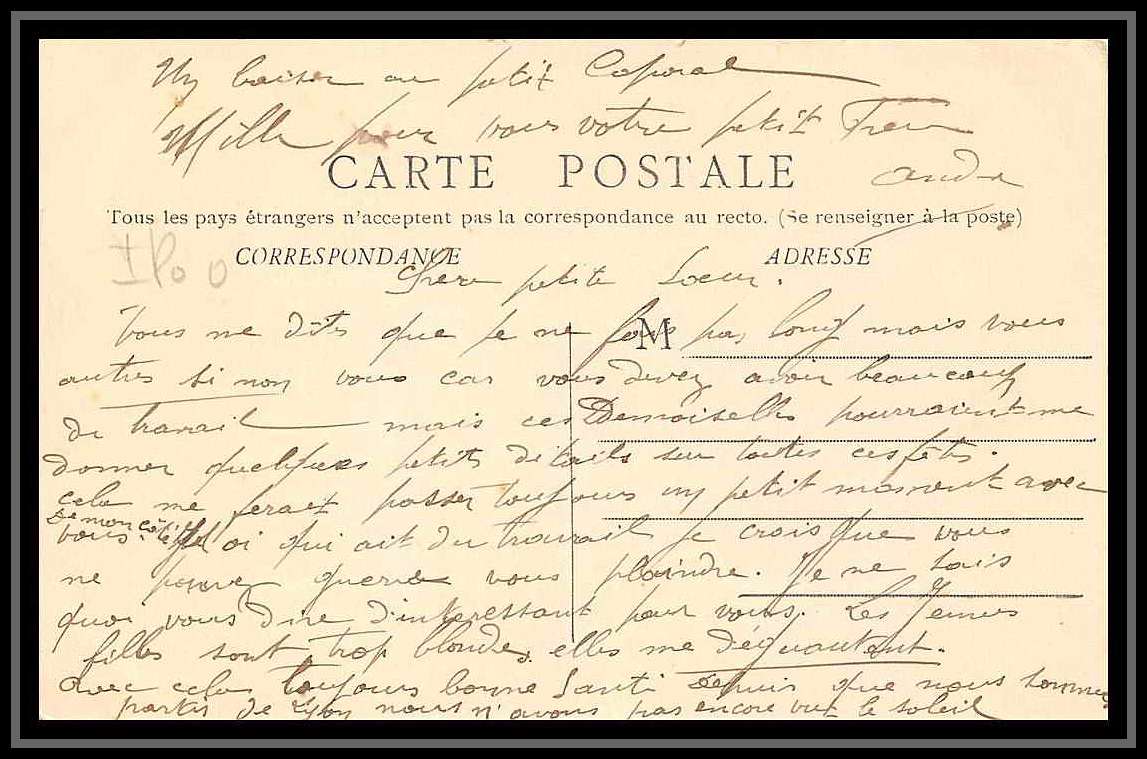 Un baiser au petit Caporal
Mille pour vous votre petit Frere
andre
CARTE POSTALE
Tous les pays étrangers n'acceptent pas la correspondance au recto. (Se renseigner à la poste)
CORRESPONDANCE ADRESSE
Chere petite Soeur.
M
Vous me dites que je ne fais pas long mais vous
autres si non vous car vous devez avoir beaucoup
de travail mais ces Demoiselles pourraient me
donner quelques petits détails sur toutes ces fêtes.
cela me ferait passer toujours un petit moment avec
vous. De mon côté moi qui ait du travail je crois que vous
ne pouvez guere vous plaindre. Je ne sais
quoi vous dire d'interessant pour vous. Les Jeunes
filles sont trop blondes. elles me dégoutent.
avec cela toujours bonne Santé Depuis que nous sommes
partis de Lyon nous n'avons pas encore vut le soleil